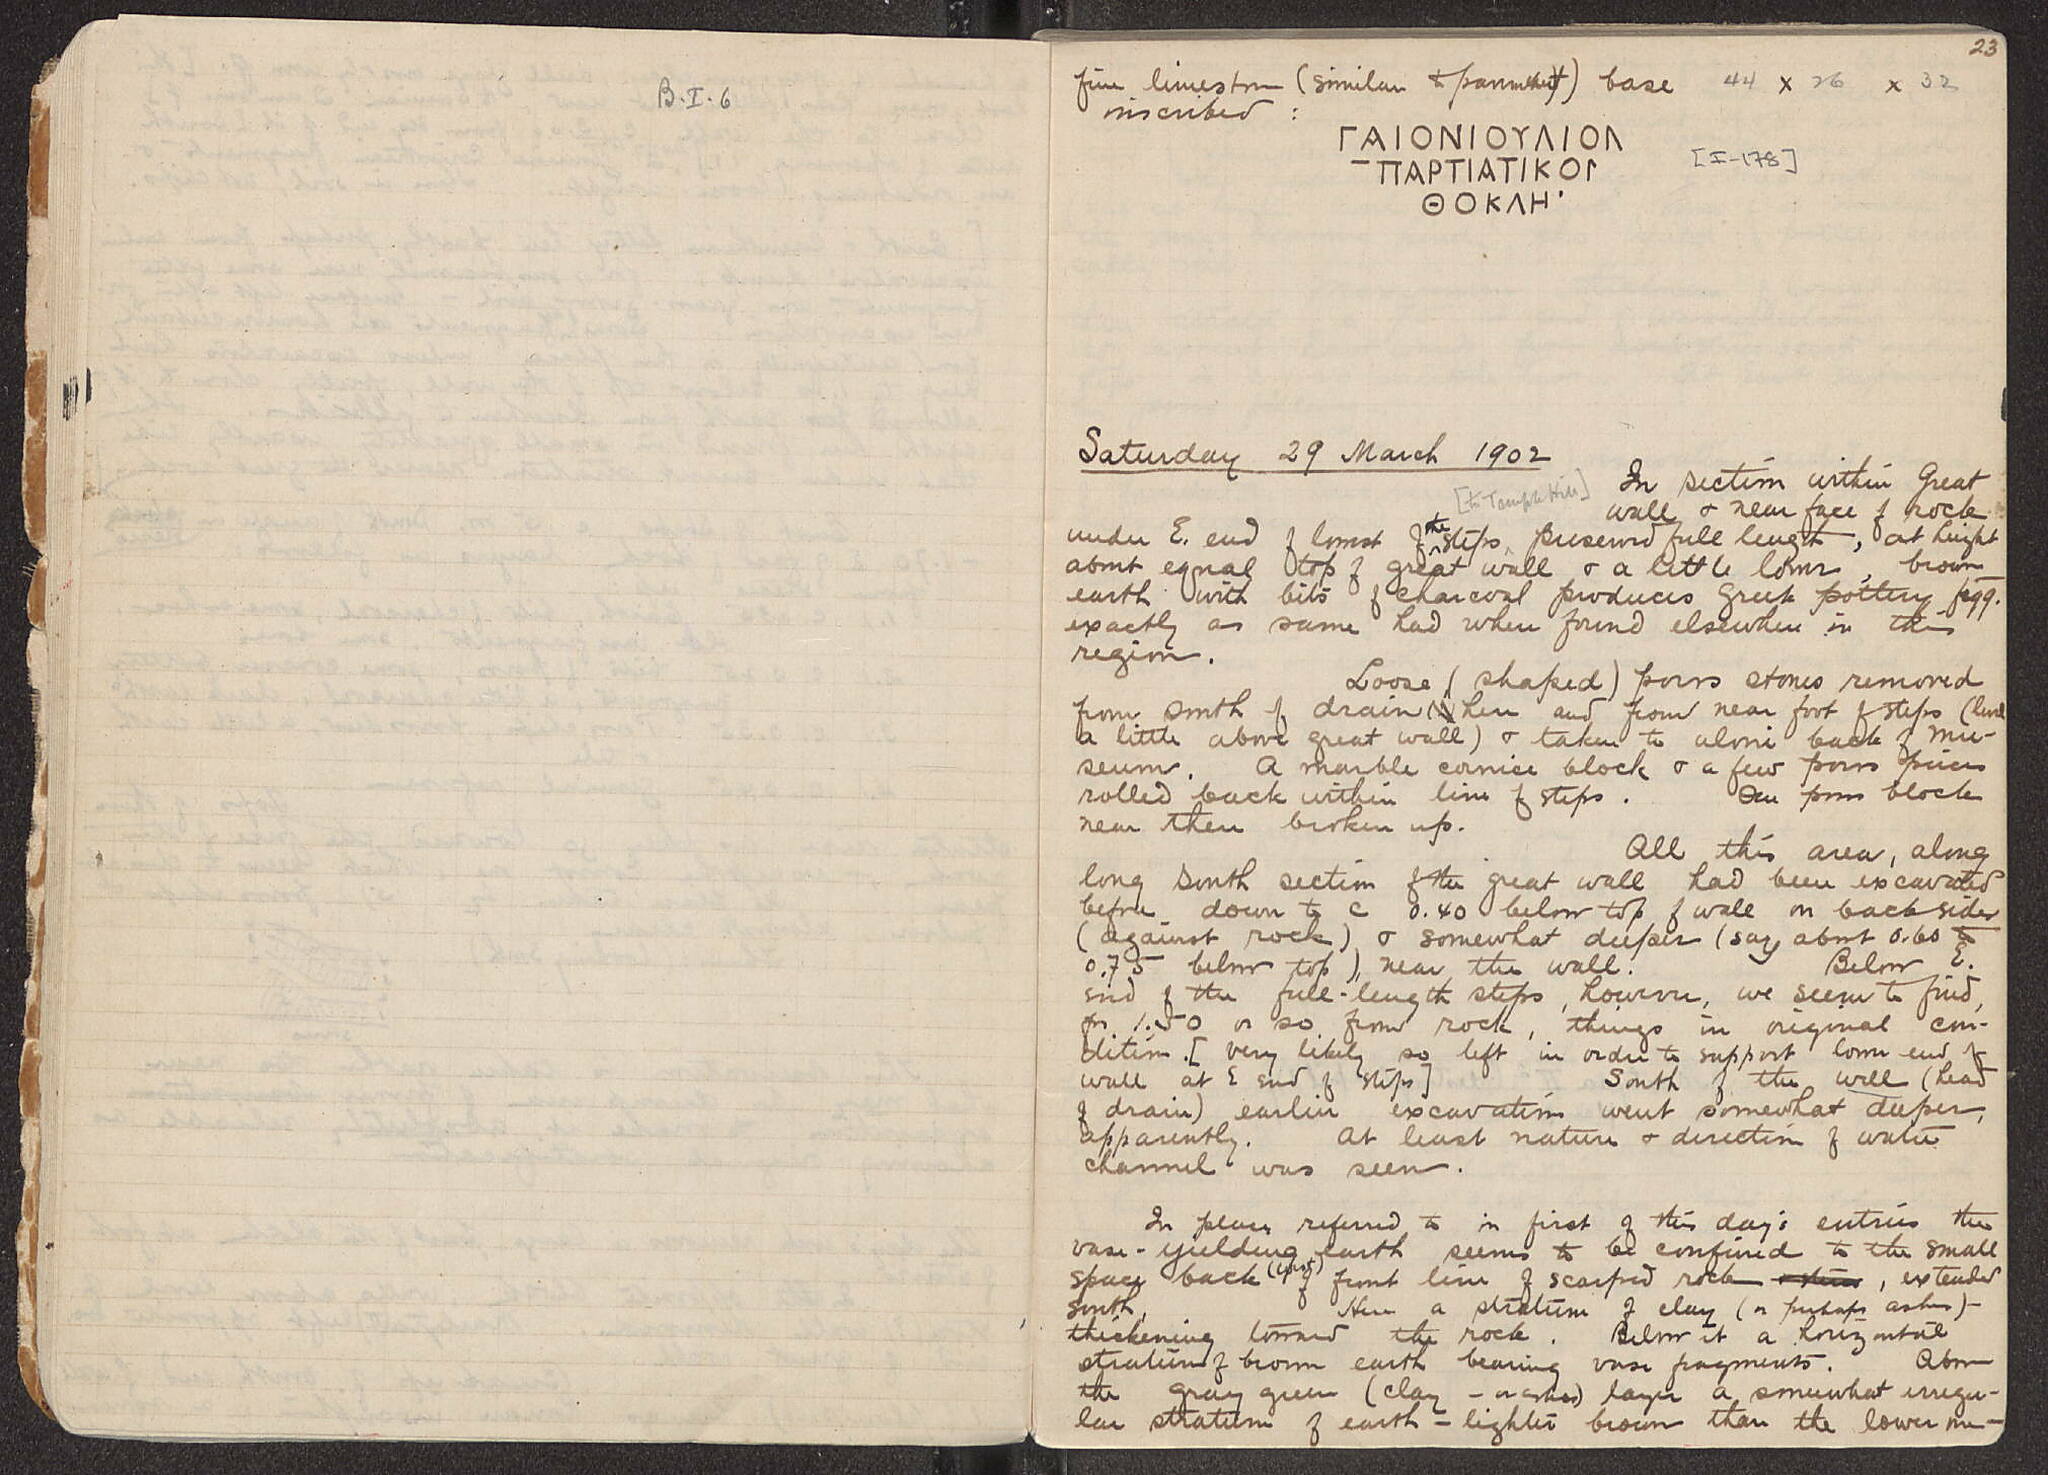 B.I.6
23
fine limestone (similar to pavement) base 44 x 26 x 32
inscribed :
ΓΑΙΟΝΙΟΥΛΙΟΛ
ΠΑΡΤΙΑΤΙΚΟΙ
[I-178]
ΘΟΚΛΗ'
Saturday 29 March 1902
In section within Great
[to Temple Hill]
wall & near face of rock
under E. end of lowest of the steps, preserved full length, at height
about equal top of great wall & a little lower, brown
earth with bits of charcoal produces Greek pottery fgg.
exactly as same had when found elsewhere in this
region.
Loose (shaped) poros stones removed
from south of drain here and from near foot of steps (level
a little above great wall) & taken to back of Mu-
seum. A marble cornice block & a few poros pieces
rolled back within line of steps. One poros block
near there broken up.
All this area, along
long south section of the great wall had been excavated
before down to c 0.40 below top of wall on back sides
(against rock) & somewhat deeper (say about 0.60 to
0.75 below top) near the wall. Below E.
end of the full-length steps, however, we seem to find,
for 1.50 or so from rock, things in original con-
dition. [very likely so left in order to support lower end of
wall at E end of steps] South of the well (head
of drain) earlier excavation went somewhat deeper,
apparently. At least nature & direction of water
channel was seen.
In place referred to in first of this day's entries the
vase-yielding earth seems to be confined to the small
space back (west) of front line of scarped rock, extended
south. Here a stratum of clay (or perhaps ashes) -
thickening toward the rock. Below it a horizontal
stratum of brown earth bearing vase fragments. Above
the gray green (clay - or ashes) layer a somewhat irregu-
lar stratum of earth - lighter brown than the lower one -